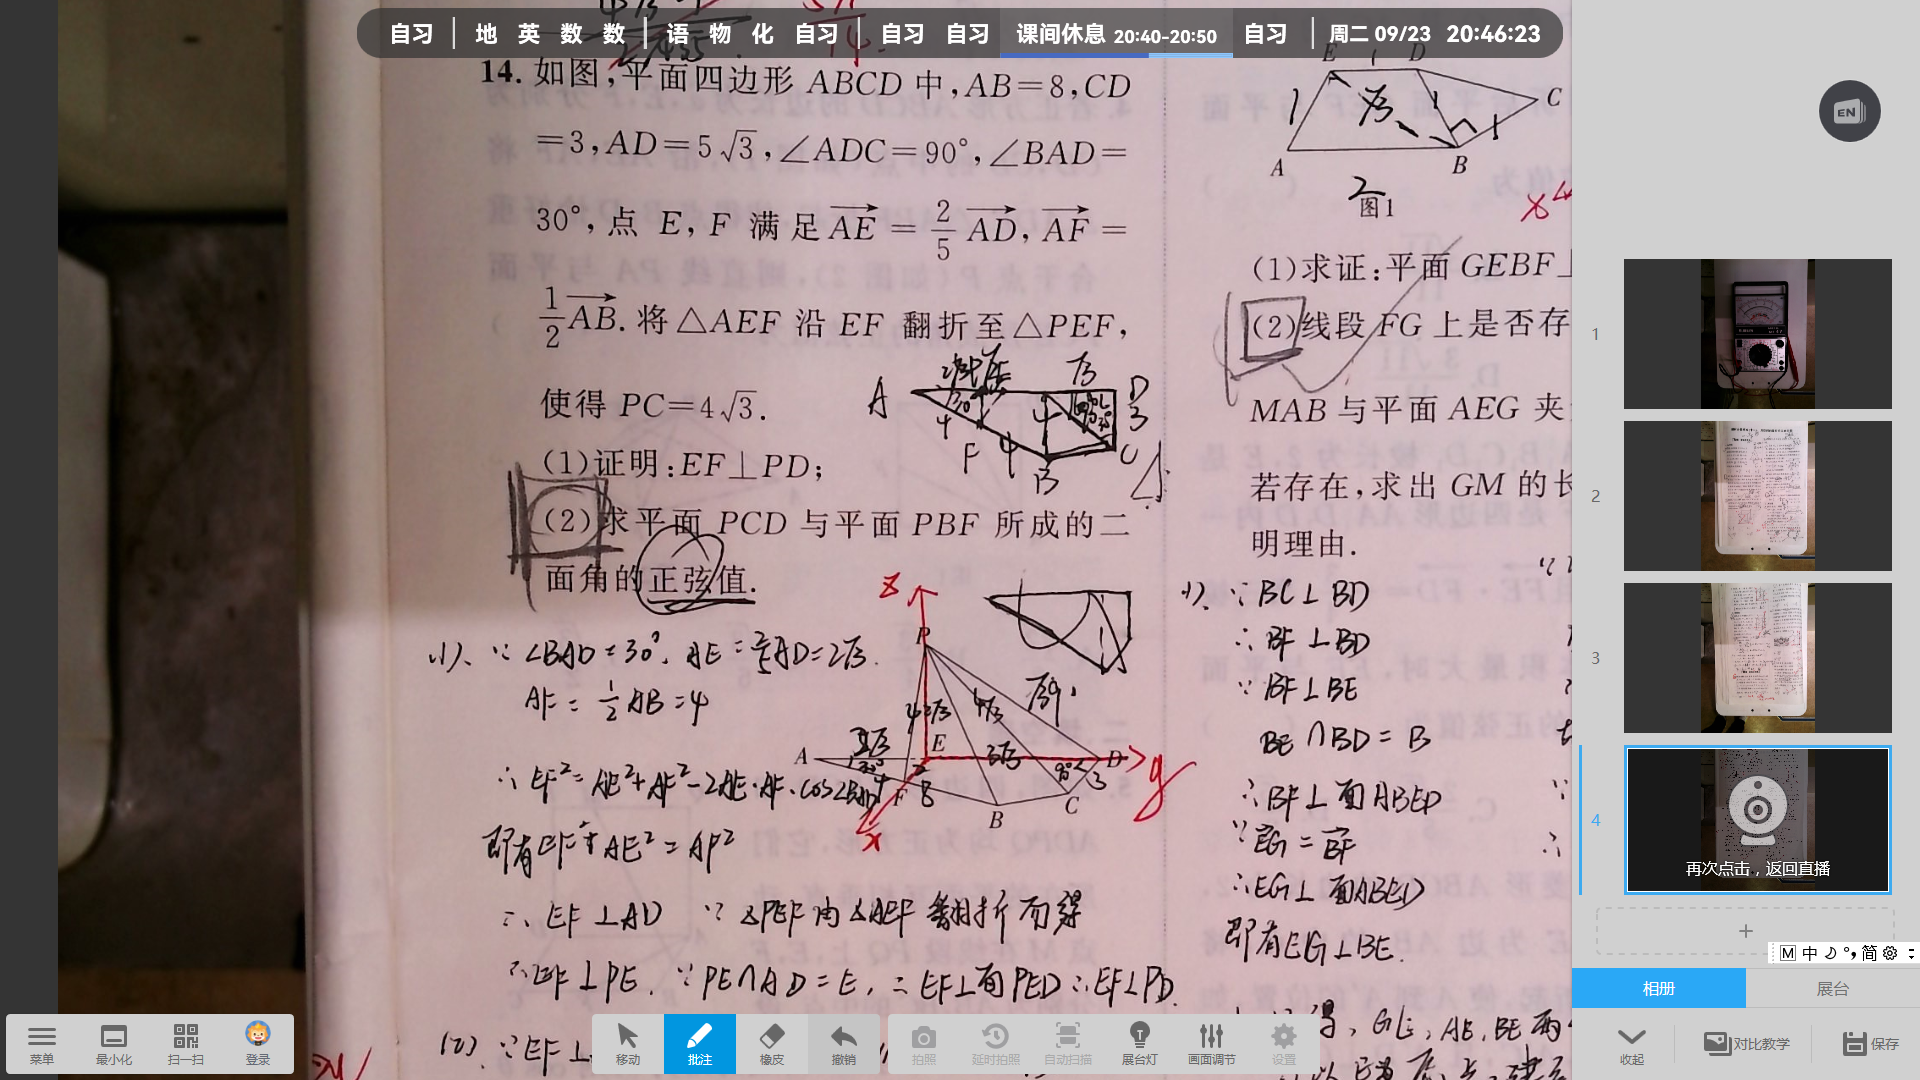 自习 | 地 英 数 数 | 语 物 化 自习 | 自习 自习 课间休息 20:40-20:50 自习 | 周二 09/23 20:46:23
14. 如图,平面四边形 ABCD 中,AB=8,CD
=3,AD=5√3,∠ADC=90°,∠BAD=
30°,点 E,F 满足 AE = 2/5 AD, AF =
1/2 AB. 将△AEF 沿 EF 翻折至△PEF,
使得 PC=4√3.
(1)证明:EF⊥PD;
(2)求平面 PCD 与平面 PBF 所成的二
面角的正弦值.
A D 3 C B F 4 4
z P E A F B C D x y
4√3 3√3 90° 3 8
(1)、∵ ∠BAD=30°, AE=2/5AD=2√3.
AF=1/2AB=4
∴ EF²=AE²+AF²-2AE·AF·cos∠BAD
即有EF²+AE²=AF²
∴ EF⊥AD ∵ △PEF由△AEF翻折而得
∴EF⊥PE. ∵PE∩AD=E, ∴EF⊥面PED ∴EF⊥PD.
(2) ∵EF⊥
E 1 D
1 √3 1 C
A B 1
2
图1
(1)求证:平面 GEBF⊥
(2)线段 FG 上是否存
MAB 与平面 AEG 夹
若存在,求出 GM 的长
明理由.
(1)、∵ BC⊥BD
∴ BF⊥BD
∵ BF⊥BE
BE∩BD=B
∴BF⊥面ABED
∵EG=BF
∴EG⊥面ABED
即有EG⊥BE.
得, GE, AE, BE两
EN
1
2
3
4
再次点击，返回直播
+
M 中 简
相册 展台
收起 对比教学 保存
菜单 最小化 扫一扫 登录
移动 批注 橡皮 撤销 拍照 延时拍照 自动扫描 展台灯 画面调节 设置